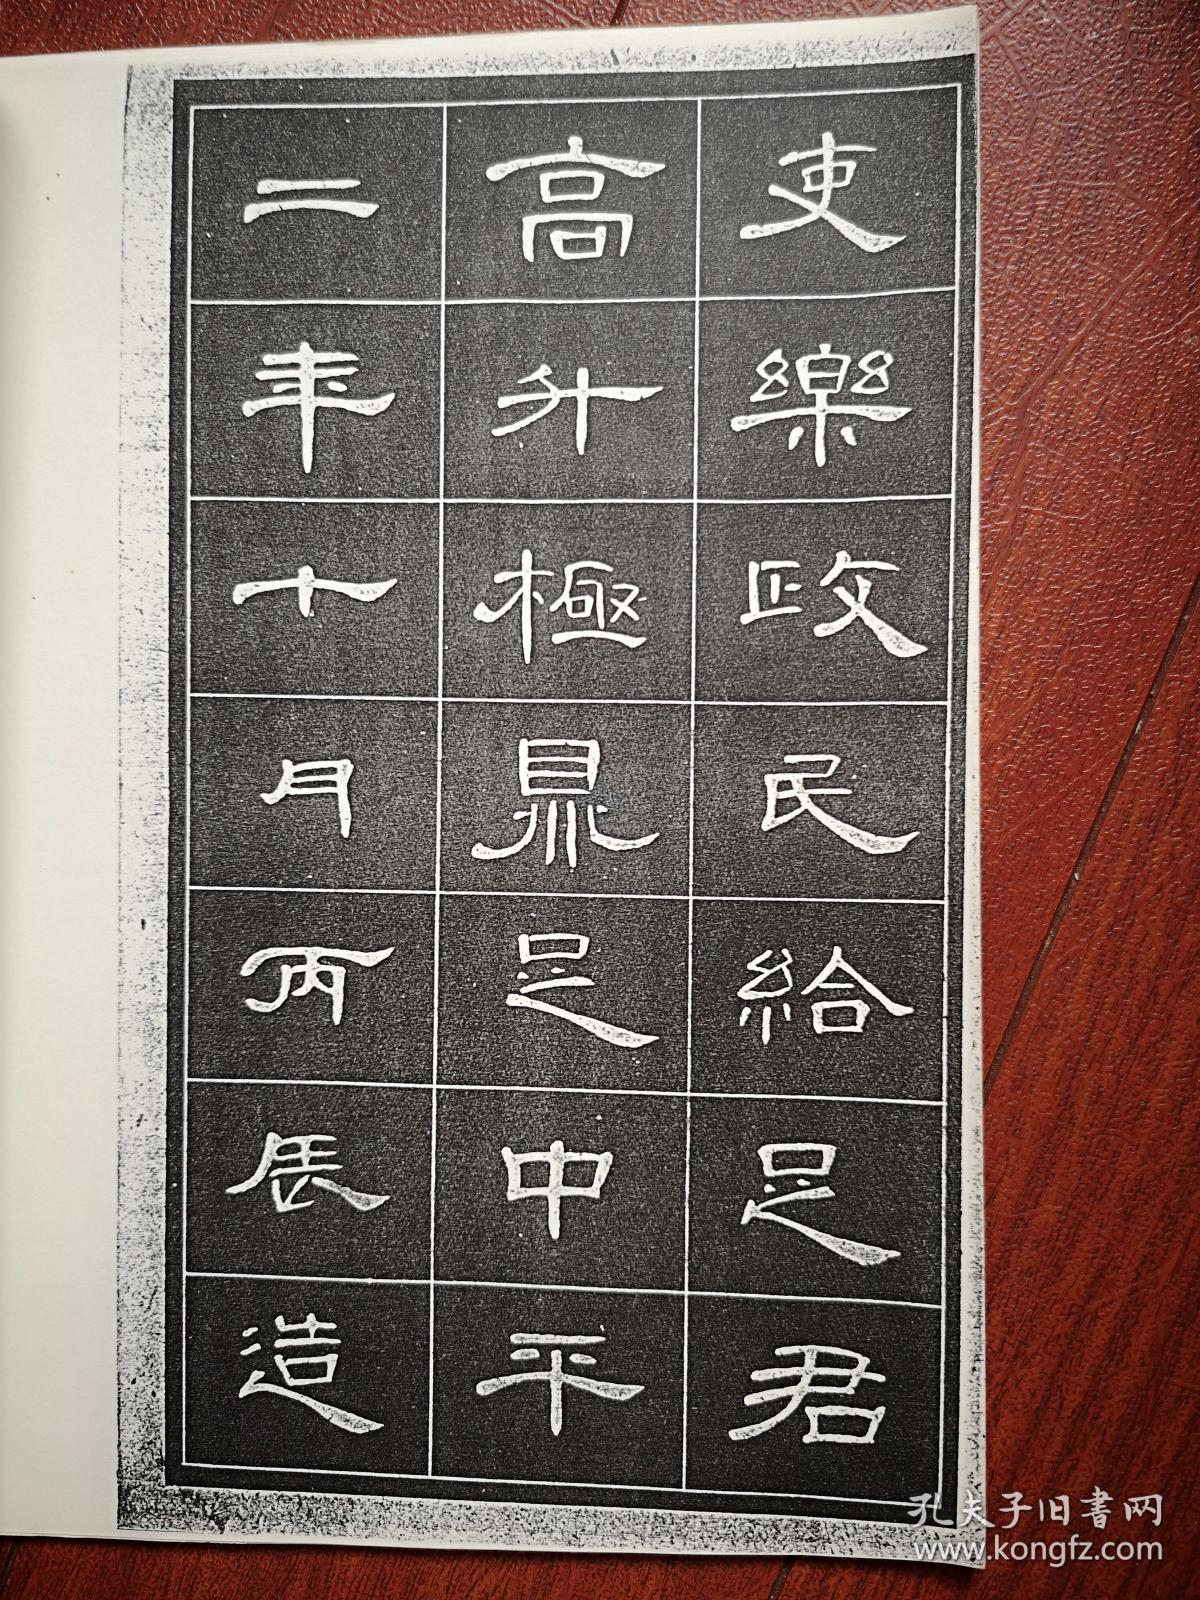 吏樂政民給足君
高升極鼎足中平
二年十月丙辰造
孔夫子旧書网
www.kongfz.com